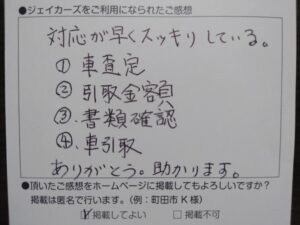 ●ジェイカーズをご利用になられたご感想
対応が早くスッキリしている。
① 車査定
② 引取金額
③ 書類確認
④ 車引取
ありがとう。助かります。
●頂いたご感想をホームページに掲載してもよろしいですか?
掲載は匿名で行います。(例:町田市K様)
☑掲載してよい □掲載不可